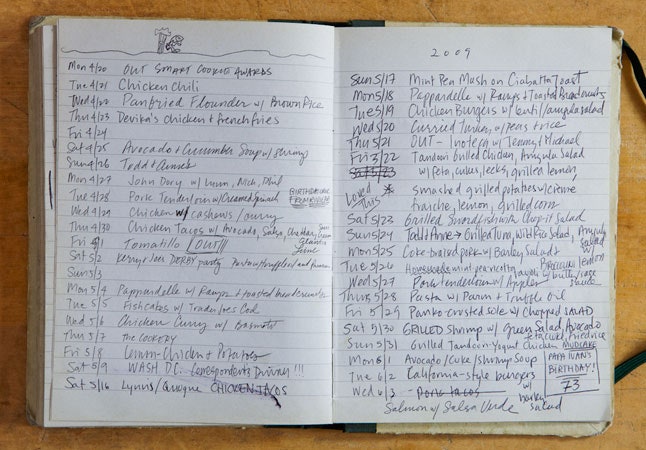 Mon 4/20 OUT SMART COOKIE AWARDS
Tue 4/21 Chicken Chili
Wed 4/22 Panfried Flounder w/ Brown Rice
Thu 4/23 Devika's chicken + french fries
Fri 4/24
Sat 4/25 Avocado + Cucumber Soup w/ Shrimp
Sun 4/26 Todd +
Mon 4/27 John Dory w/ Nick, Phil
Tue 4/28 Pork Tenderloin w/ Creamed Spinach
BIRTHDAY
Wed 4/29 Chicken w/ cashews / curry
Thu 4/30 Chicken Tacos w/ Avocado, Salsa, Cheddar, Sour Cream
Cilantro
Lime
Fri 5/1 Tomatillo (OUT!!!
Sat 5/2 Kerry + Joe's DERBY party
Sun 5/3
Mon 5/4 Pappardelle w/ Ramps + toasted breadcrumbs
Tue 5/5 Fishcakes w/ Trader Joes Cod
Wed 5/6 Chicken Curry w/ Basmati
Thu 5/7 The COOKERY
Fri 5/8 Lemon Chicken + Potatoes
Sat 5/9 WASH D.C. Correspondents Dinner!!!
Sat 5/16 Lynn's / Quogue CHICKEN TACOS
2009
Sun 5/17 Mint Pea Mush on Ciabatta Toast
Mon 5/18 Pappardelle w/ Ramps + Toasted Breadcrumbs
Tue 5/19 Chicken Burgers w/ lentil/arugula salad
Wed 5/20 Curried Turkey w/ peas + rice
Thu 5/21 OUT - w/ Jenny + Michael
Fri 5/22 Tandoori Grilled Chicken, Arugula Salad
Sat 5/23 w/ Feta, cukes, leeks, grilled lemon
Loved * smashed grilled potatoes w/ crème
This fraiche, lemon, grilled corn
Sat 5/23 Grilled Swordfish w/ Chop-it Salad
Sun 5/24 Todd + Anne → Grilled Tuna, Wild Rice Salad, Arugula
Salad
w/
Mon 5/25 Coke-braised pork w/ Barley Salad
lemon
Tue 5/26 Homemade mint-pea ravioli w/ butter/sage
sauce
Wed 5/27 Pork tenderloin w/ Apples
Thu 5/28 Pasta w/ Parm + Truffle Oil
Fri 5/29 Panko crusted sole w/ chopped SALAD
Sat 5/30 GRILLED Shrimp w/ Green Salad, Avocado
feta, cuke, fried rice
Sun 5/31 Grilled Tandoori-Yogurt Chicken MUDCAKE
Mon 6/1 Avocado/Cuke/Shrimp Soup
PAPA IVAN'S
BIRTHDAY!
73
Tue 6/2 California-style burgers
Wed 6/3 Pork tacos w/
barley
Salmon w/ Salsa Verde salad